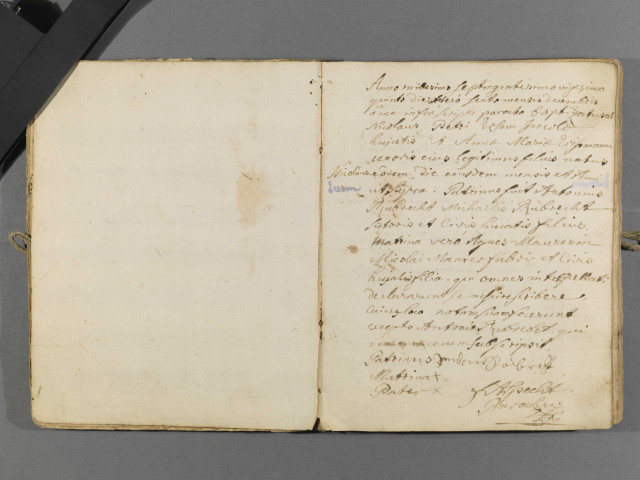 Anno millesimo septingentesimo vigesimo
quinto die vero sexto mensis decembris
a me infrascripto parocho baptizatus est
Nicolaus Petri
hujatis et Anna Maria
uxoris ejus legitimus filius natus
eodem die ejusdem mensis et Anni
ut supra. Patrinus fuit Antonius
Rubrecht Michaelis Rubrecht
sartoris et Civis hujatis filius
matrina vero Agnes Maurerin
Nicolai Maurer fabri et Civis
hujatis filia. qui omnes interpellati
declararunt se nescire scribere
cuius loco notam suam fecerunt
excepto Antonio Rubrecht qui
subscripsit
Patrinus
Matrina +
Pater +
Parochus